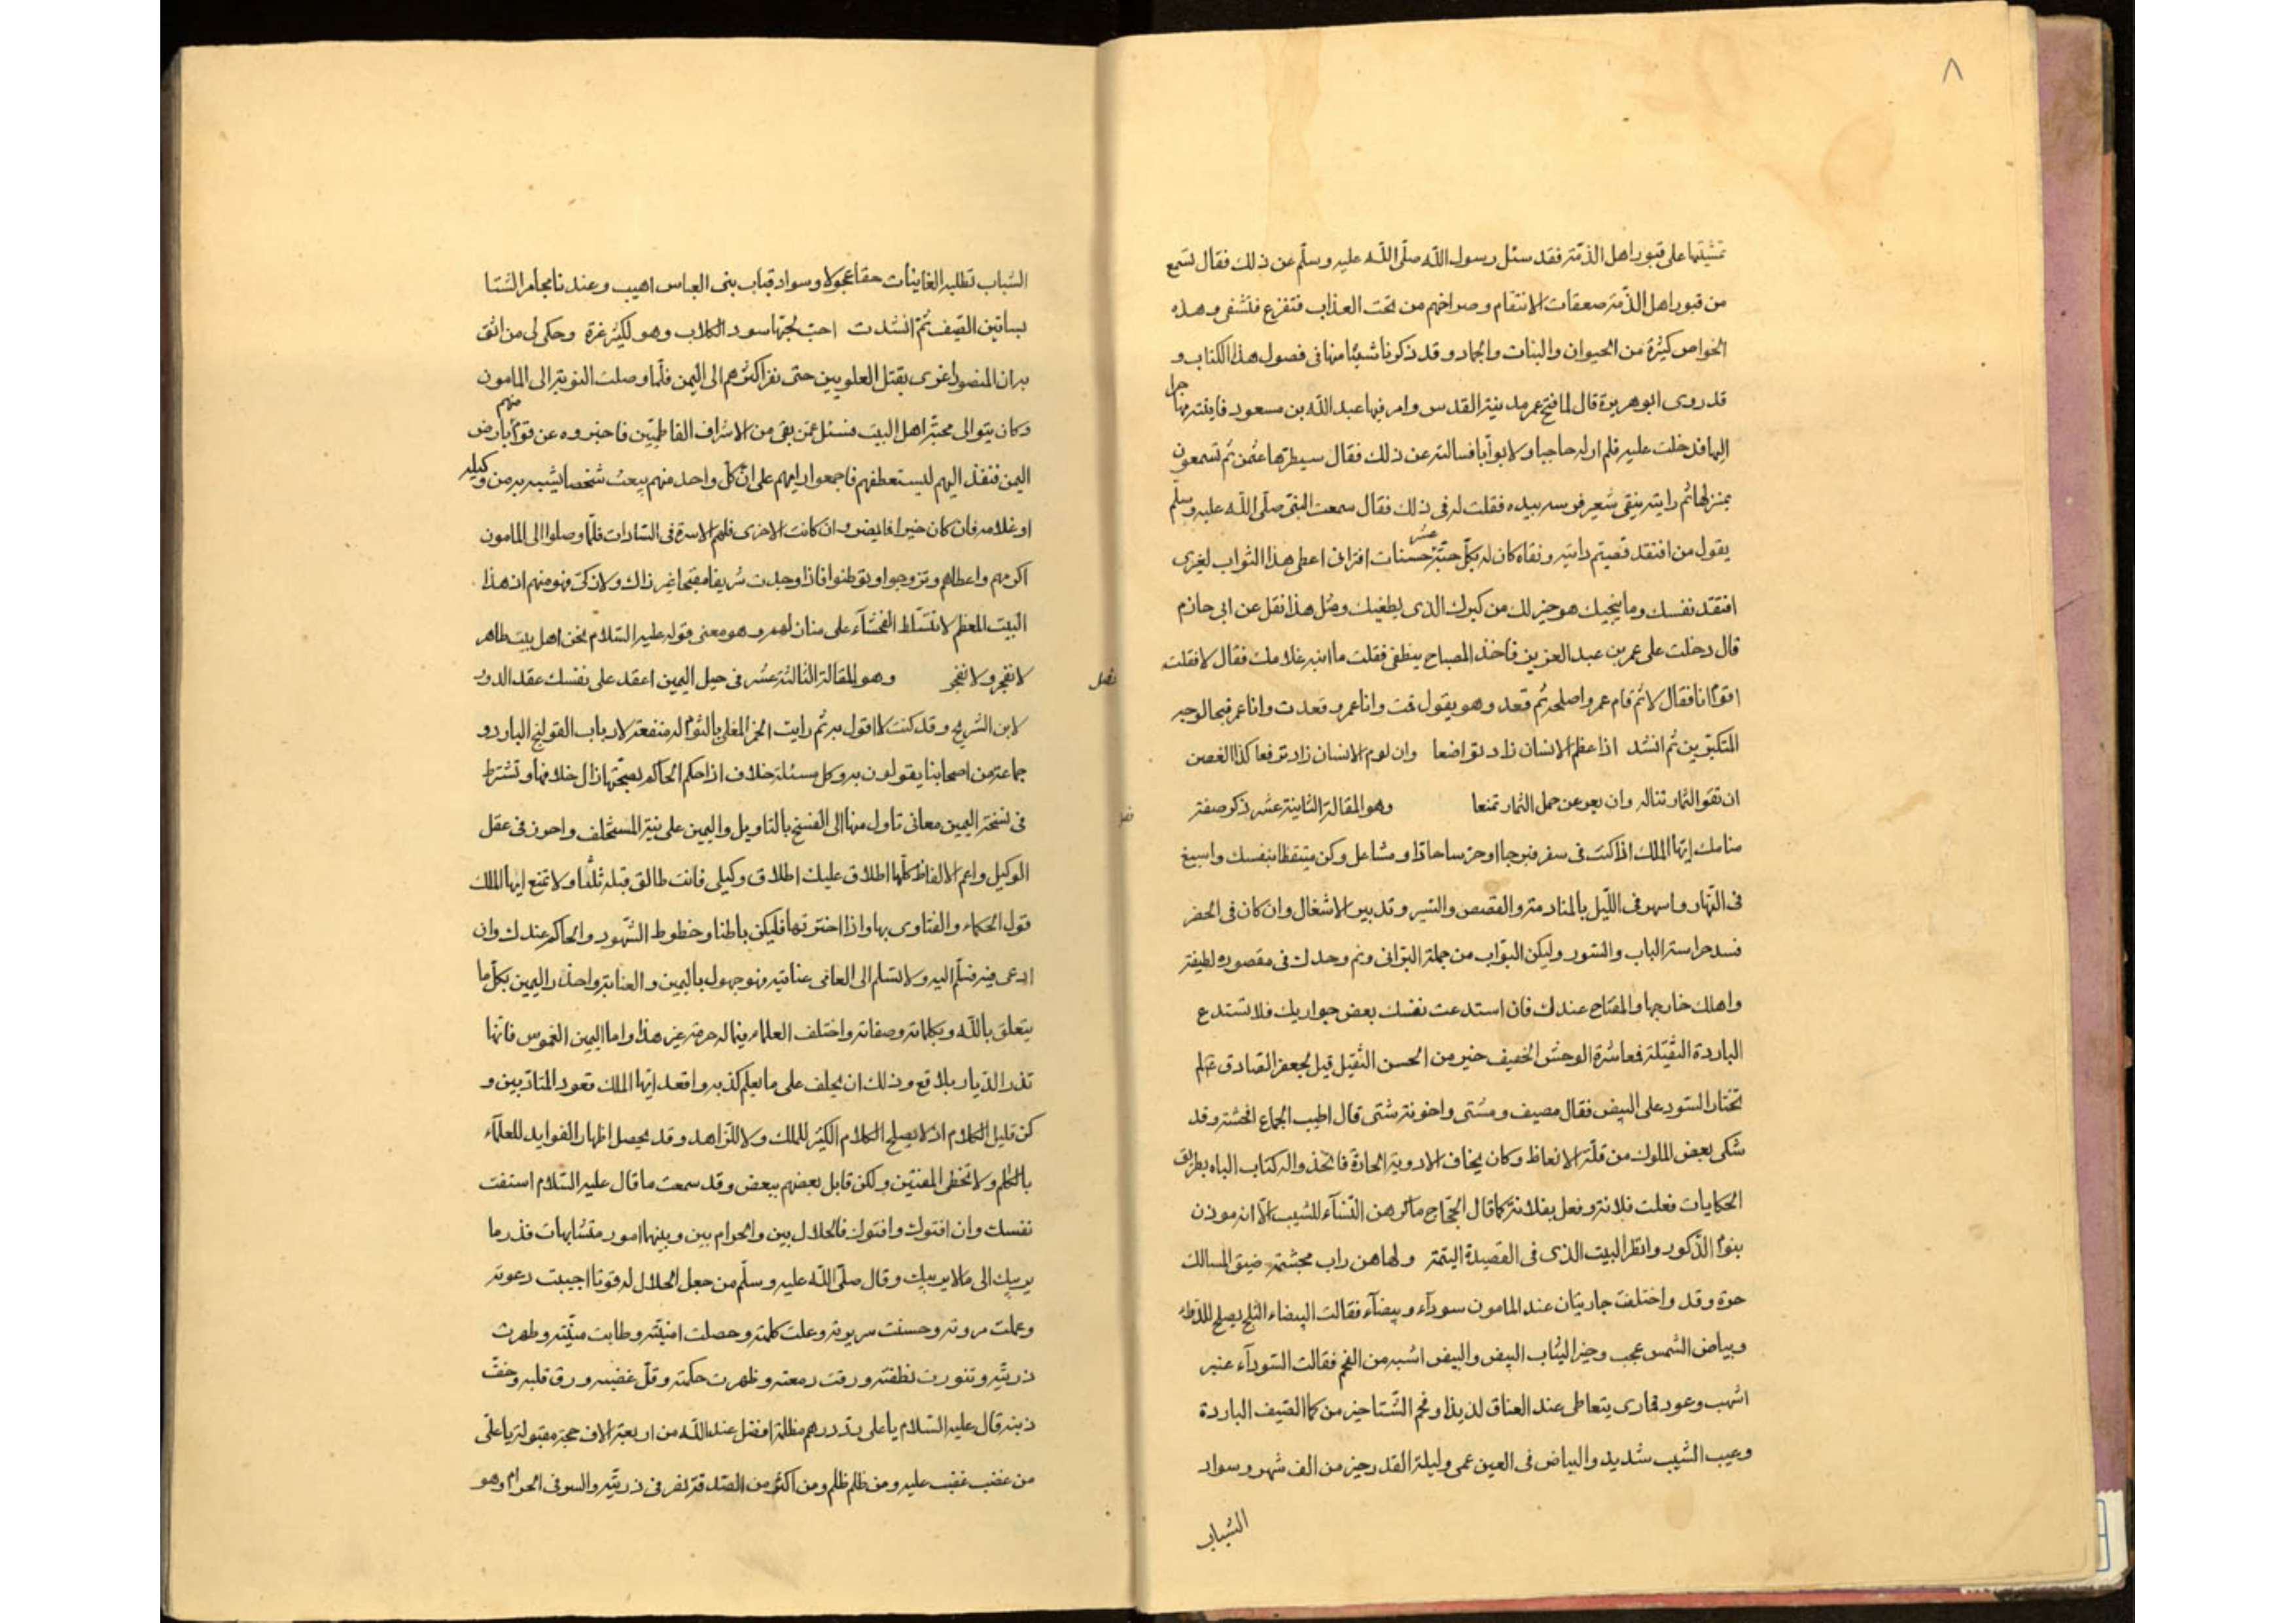 ٨
تمشيتها على قبور اهل الذمّة فقد سئل رسول الله صلّى الله عليه وسلّم عن ذلك فقال تسمع
من قبور اهل الذمّة صعقات الانتقام وصراخهم من تحت العذاب فتفزع فتشفى وهذه
الخواص كثيرة من الحيوان والنبات والجماد وقد ذكرنا شيئا منها فى فصول هذا الكتاب و
قد روى ابو هريرة قال لما فتح عمر مدينة القدس وامر فيها عبد الله بن مسعود فاتيته مهاجرا
اليها فدخلت عليه فلم ار له حاجبا ولا بوّابا فسالته عن ذلك فقال سيطرتها عثمن ثم تسمعون
بمنزلها ثم رايته ينقى شعير فرسه بيده فقلت له فى ذلك فقال سمعت النبى صلّى الله عليه وسلم
يقول من افتقد قضيم دابته ونقاه كان له بكلّ حبّة عشر حسنات افترانى اعطى هذا الثواب لغيرى
افتقد نفسك وما ينجيك هو خير لك من كبرك الذى يطغيك ومثل هذا نقل عن ابى حازم
قال دخلت على عمر بن عبد العزيز فاخذ المصباح ينطفى فقلت ما انبه غلامك فقال لا فقلت
اقوم انا فقال لا ثم قام عمر واصلحه ثم قعد وهو يقول قمت وانا عمر وقعدت وانا عمر قبحا لوجه
المتكبّرين ثم انشد اذا عظم الانسان زاد تواضعا وان لوم الانسان زاد ترفعا كذا الغصن
ان تقو الثمار تناله وان يعر عن حمل الثمار تمنعا وهو المقالة الثانية عشر ذكر صفة
منامك ايّها الملك اذا كنت فى سفر فبرجا او حرسا حاذا ومشاعل وكن متيقظا بنفسك واسبغ
فى النّهار واسهر فى اللّيل بالمنادمة والقصص والسير وتدبير الاشغال وان كان فى الحضر
فسد حراسة الباب والستور وليكن البوّاب من جملة البرّانى ونم وحدك فى مقصوره لطيفة
واهلك خارجها والمفتاح عندك فان استدعت نفسك بعض جواريك فلا تستدع
الباردة الثقيلة فمعاشرة الوحش الخفيف خير من الحسن الثقيل قيل لجعفر الصادق عم لم
تختار السود على البيض فقال مصيف ومشتى واخونة شتى قال اطيب الجماع افحشه وقد
شكى بعض الملوك من قلّة الانعاظ وكان يخاف الادوية الحادّة فاتخذ واله كتاب الباه بطريق
الحكايات فعلت فلانة وفعل بفلانة كما قال الحجّاج ما كرهن النّساء للشيب الّا انه موذن
بنوم الذّكور وانظر البيت الذى فى القصيدة اليتمة ولها هن راب مجشته ضيق المسالك
حره وقد واختلفت جاريتان عند المامون سوداء وبيضاء فقالت البيضاء الثلج يصلح للدّواء
وبياض الشمس عجب وخير الثياب البيض والبيض اشبه من الفحم فقالت السّوداء عنبر
اشهب وعود قمارى يتعاطى عند العناق لذيذا وفحم الشّتا خير من كما الصّيف الباردة
وعيب الشّيب شديد والبياض فى العين عمى وليلة القدر خير من الف شهر وسواد
الشباب
الشباب تطلبه الغانيات حقا عجولا وسواد قباب بنى العباس اهيب وعندنا مجامر الشتا
بساتين الصّيف ثمّ انشدت احبّ لحبّها سود الكلاب وهو لكثير عزة وحكى لى من اثق
به ان المنصور اغرى بقتل العلويين حتى نفر اكثرهم الى اليمن فلمّا وصلت النوبة الى المامون
وكان يتوالى محبّة اهل البيت فسئل عمّن بقى من الاشراف الفاطميّين فاخبروه عن قوم منهم بارض
اليمن فنفذ اليهم ليستعطفهم فاجمعوا رايهم على ان كلّ واحد منهم يبعث شخصا يشبه به من وكيله
او غلامه فان كان خيرا فايض وان كانت الاخرى فلهم الاسرة فى السّادات فلمّا وصلوا الى المامون
اكرمهم واعطاهم وتزوجوا وتوطنوا فاذا وجدت شريفا مقبحا غير ذاك ولا زكىّ فهو منهم ان هذا
البيت المعظم لا تتسلّط الفحشاء على منان لهم وهو معنى قوله عليه السّلام نحن اهل بيت طاهر
لا نفجر ولا نفجر وهو المقالة الثالثة عشر فى حيل اليمين اعقد على نفسك عقد الدور
فصل
لابن السّريج وقد كنت لا اقول به ثم رايت الخمر المغلى بالثوم له منفعة لارباب القولنج البارد و
جماعة من اصحابنا يقولون به وكل مسئلة خلاف اذا حكم الحاكم بصحّتها زال خلافها وتشترط
فى نسخة اليمين معانى تأول منها الى الفسخ بالتاويل واليمين على نيّة المستحلف واحرز فى عقل
الوكيل واعم الالفاظ كلّها اطلاق عليك اطلاق وكيلى فانت طالق قبله ثلثا ولا تمنع ايها الملك
قول الحكماء والفتاوى بها واذا اخترتها فليكن باطنا وخطوط الشّهود والحاكم عندك وان
ادعى فيه فسلّم اليه ولا تسلم الى العامى عنانه فهو جهول باليمين والعناية واحذر اليمين بكلّ ما
يتعلق بالله وبكلماته وصفاته واختلف العلماء فيما له حرمة غير هذا واما اليمين الغموس فانّها
تذر الدّيار بلاقع وذلك ان يحلف على ما يعلم كذبه واقعد ايّها الملك قعود المتادّبين و
كن قليل الكلام اذ لا يصلح الكلام الكثير للملك ولا للزاهد وقد يحصل اظهار الفوايد للعلمآء
بالكلام ولا تخطى المفتين ولكن قابل بعضهم ببعض وقد سمعت ما قال عليه السّلام استفت
نفسك وان افتوك وافتوك فالحلال بين والحرام بين وبينهما امور متشابهات فذر ما
يريبك الى ما لا يريبك وقال صلّى الله عليه وسلّم من جعل الحلال له قوتا اجيبت دعوته
وعلت مروته وحسنت سريرته وعلت كلمته وحصلت امنيّته وطابت منيّته وطهرت
ذريّته وتنورت نطفته ورقت دمعته وظهرت حكمته وقلّ غضبه ورق قلبه وخفّ
ذنبه قال عليه السّلام يا على ردّ درهم مظلمة افضل عند الله من اربعة الاف حجة مقبولة يا علىّ
من غضب غضب عليه ومن ظلم ظلم ومن اكثر من الصّدقة نفر فى ذريّته والسو فى الحرام وهو